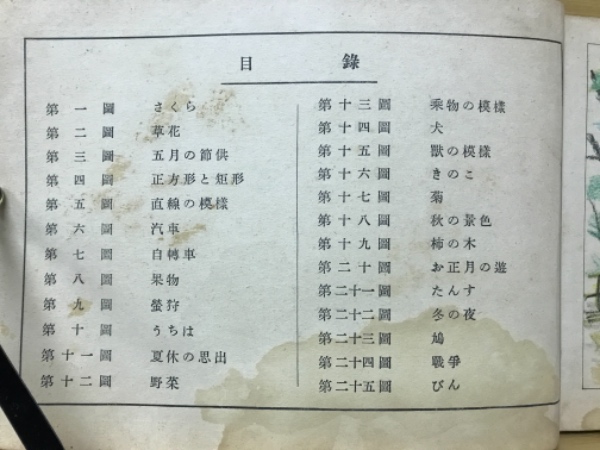 目錄
第一圖 さくら
第二圖 草花
第三圖 五月の節供
第四圖 正方形と矩形
第五圖 直線の模樣
第六圖 汽車
第七圖 自轉車
第八圖 果物
第九圖 螢狩
第十圖 うちは
第十一圖 夏休の思出
第十二圖 野菜
第十三圖 乘物の模樣
第十四圖 犬
第十五圖 獸の模樣
第十六圖 きのこ
第十七圖 菊
第十八圖 秋の景色
第十九圖 柿の木
第二十圖 お正月の遊
第二十一圖 たんす
第二十二圖 冬の夜
第二十三圖 鳩
第二十四圖 戰爭
第二十五圖 びん